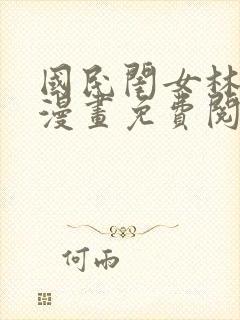 國民閨女林
漫畫免費閱
何雨